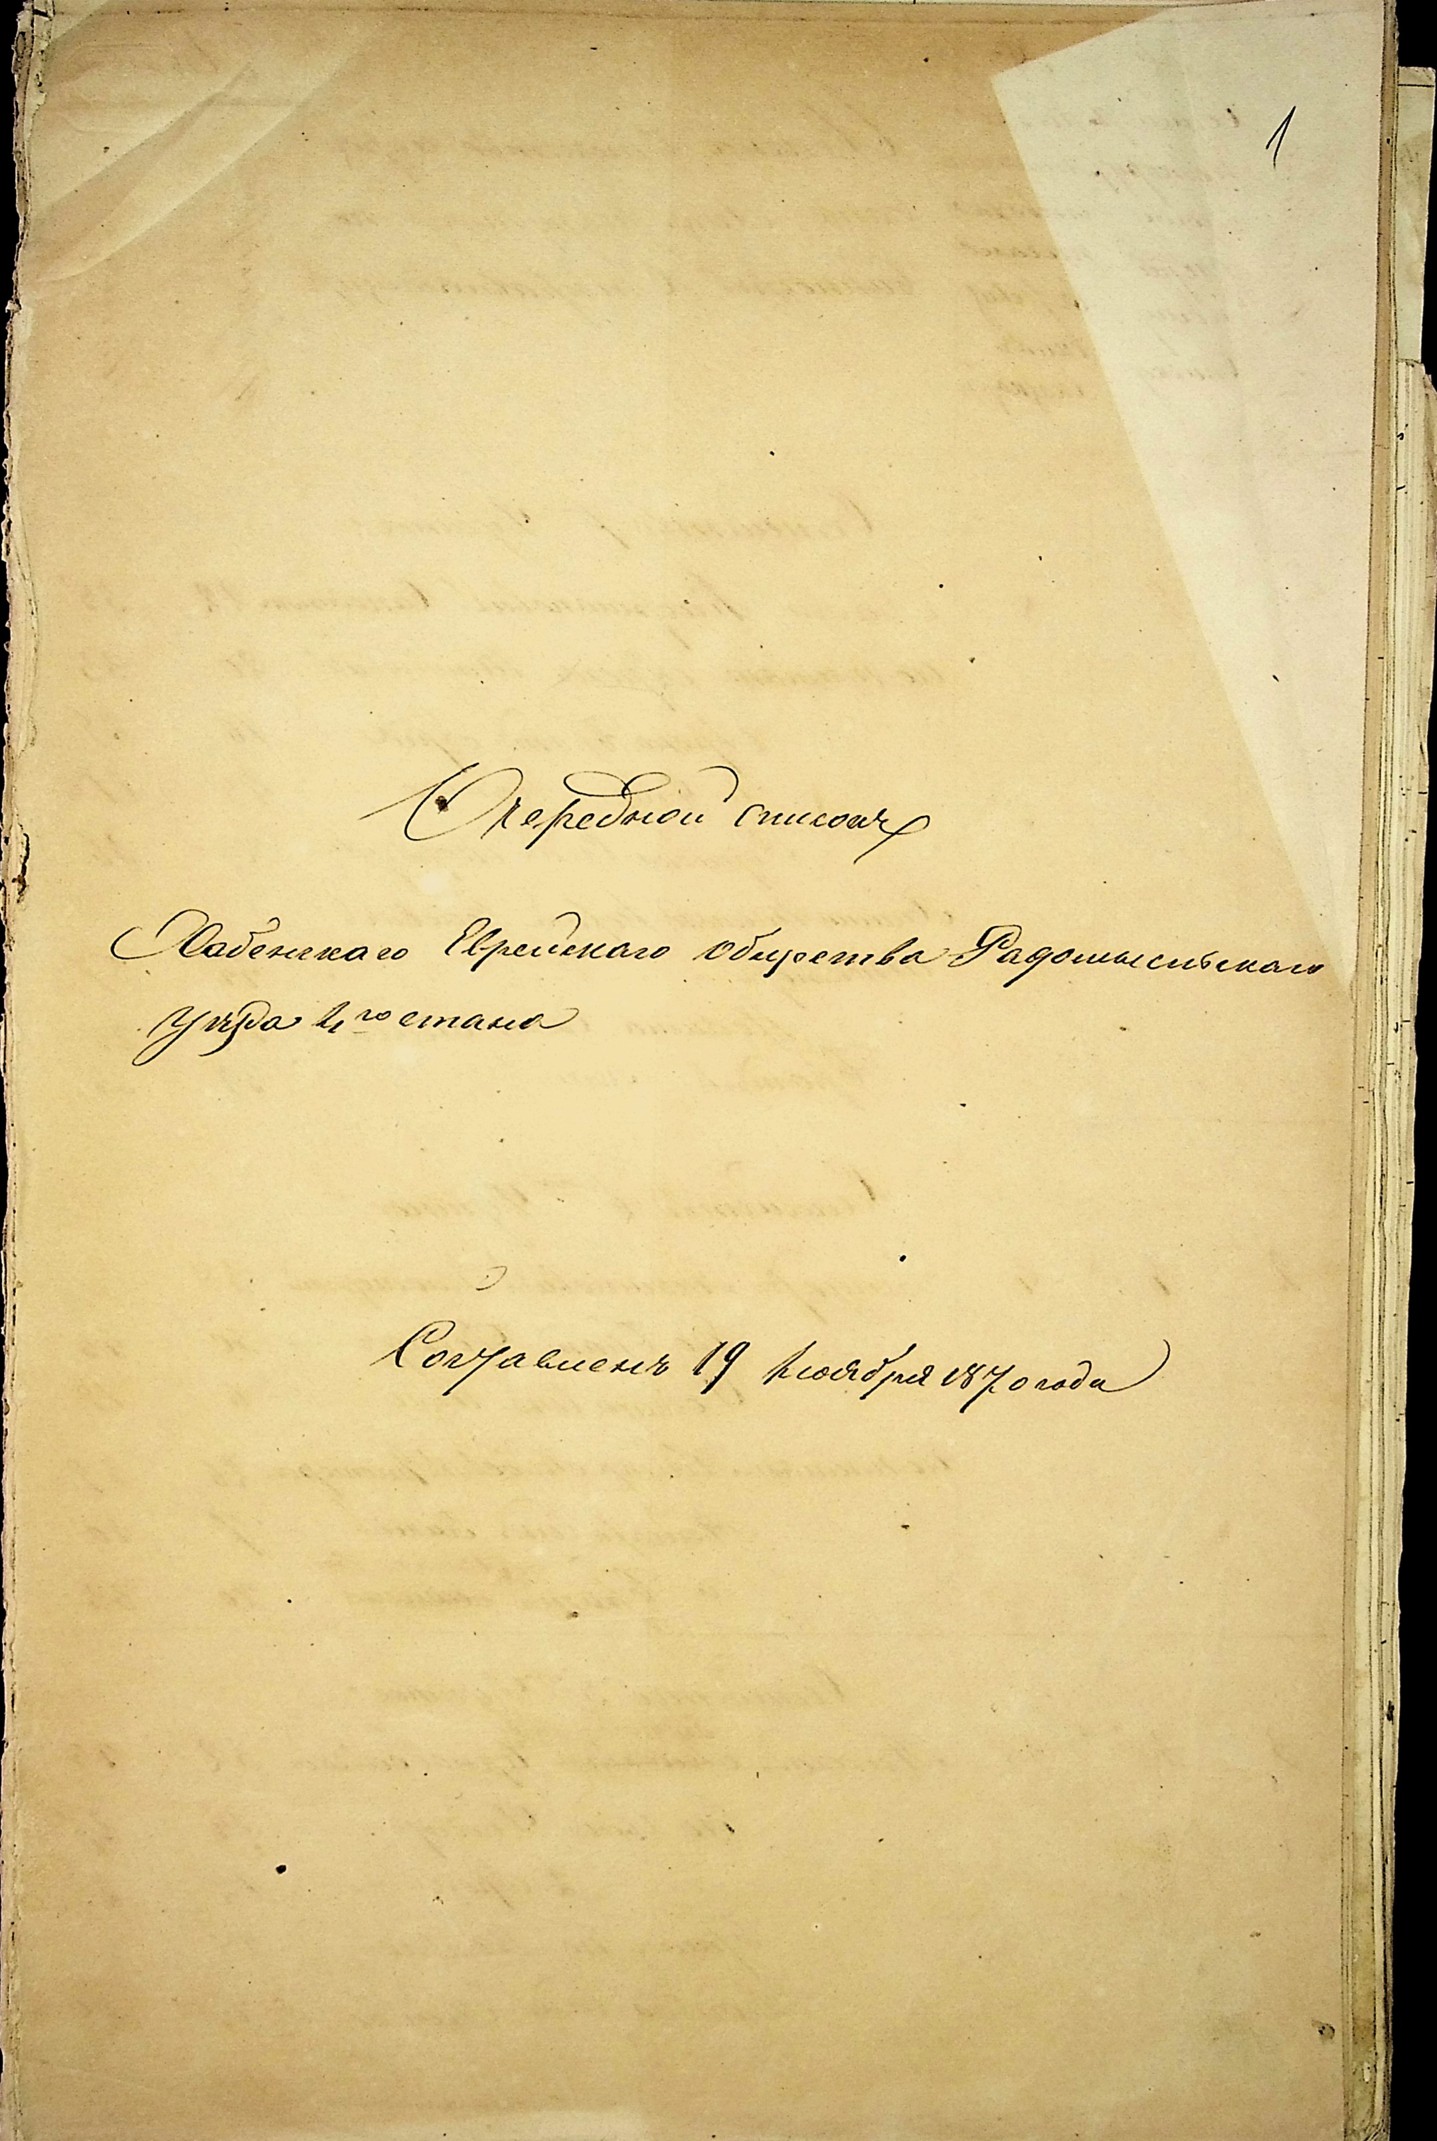 1
Очередной списокъ
Хабенскаго Еврейскаго общества Радомысльскаго
уѣзда 4го стана
Составленъ 19 ноября 1870 года